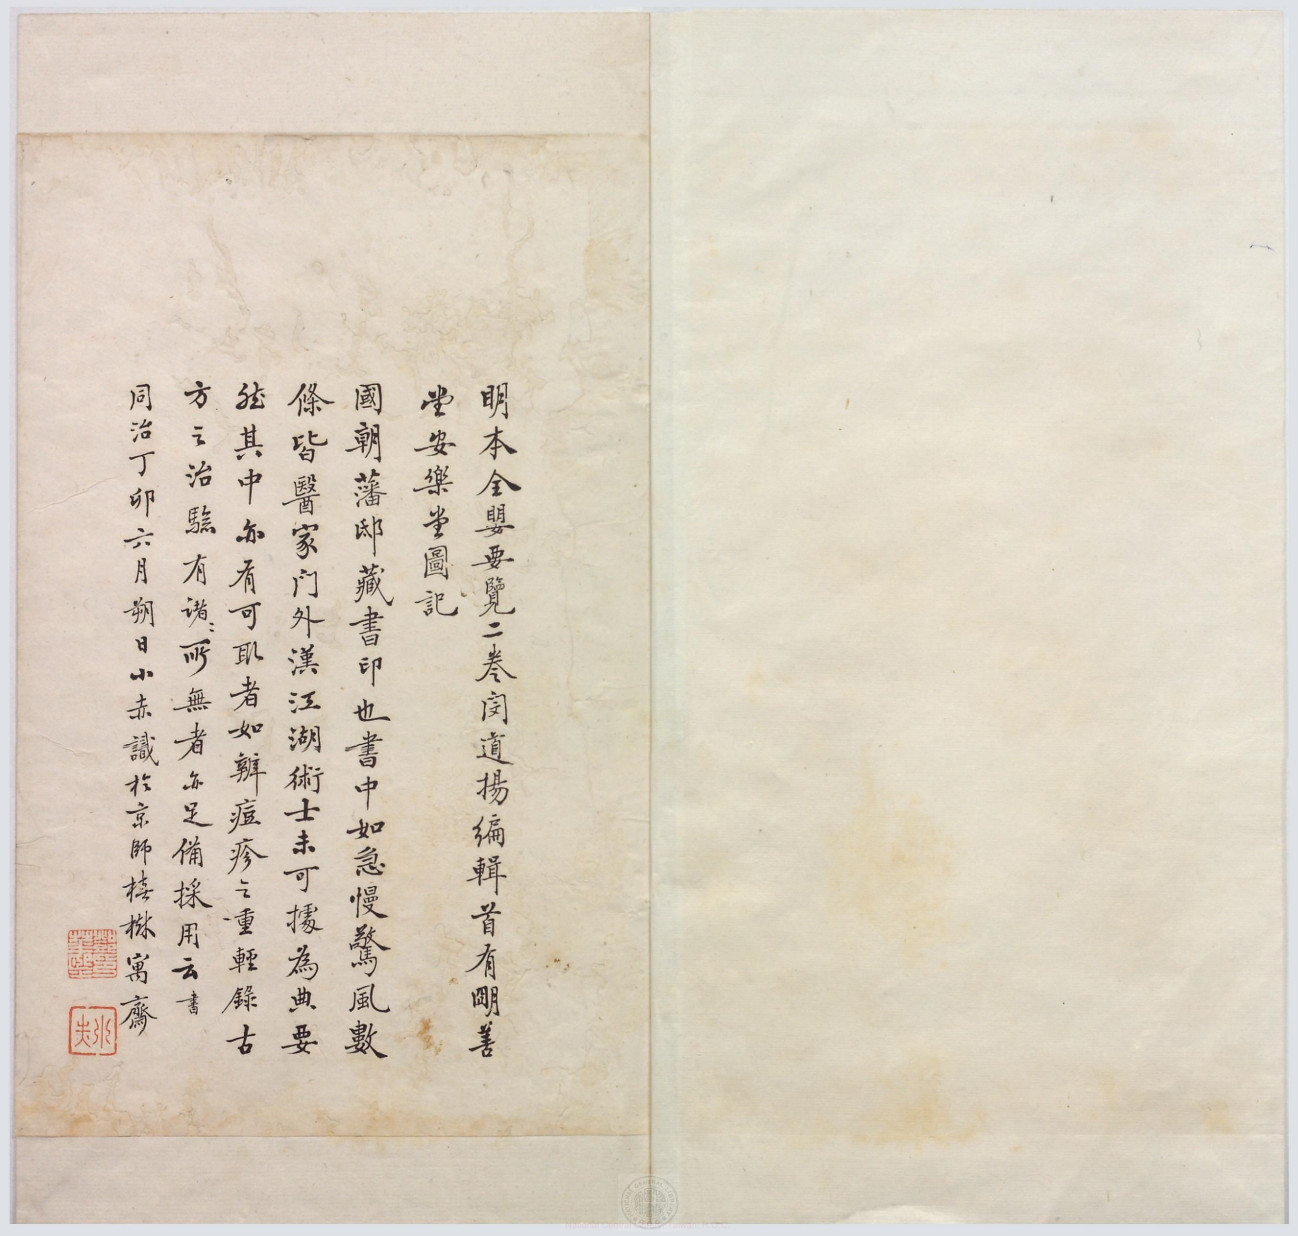 明本全嬰要覽二卷閔道揚編輯首有明善
堂安樂堂圖記
國朝藩邸藏書印也書中如急慢驚風數
條皆醫家門外漢江湖術士未可據為典要
然其中亦有可取者如辨痘疹之重輕錄古
方之治驗有諸書所無者亦足備採用云
同治丁卯六月朔日小赤識於京師椿樹寓齋